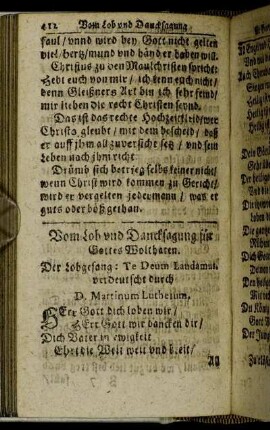 412 Vom Lob vnd Dancksagung
faul / vnnd wird bey Gott nicht gelten
viel / hertz / mund vnd händ er haben wil.
Christus zu den Maulchristen spricht:
Hebt euch von mir / ich kenn euch nicht /
denn Gleißners Art bin ich sehr feind /
mir lieben die recht Christen seynd.
Das ist das rechte Hochzeitkleid / wer
Christo gleubt / mit dem bescheid / daß
er auff jhm all zuversicht setz / und sein
Leben nach jhm richt.
Drumb sich betrieg selbs keiner nicht /
wenn Christ wird kommen zu Gericht /
wird er vergelten jedermann / was er
guts oder böß gethan.
Vom Lob vnd Dancksagung für
Gottes Wolthaten.
Der Lobgesang: Te Deum Laudamus.
verdeutscht durch
D. Martinum Lutherum.
HErr Gott dich loben wir /
HErr Gott wir dancken dir /
Dich Vater in ewigkeit
Ehret die Welt weit vnd breit /
All